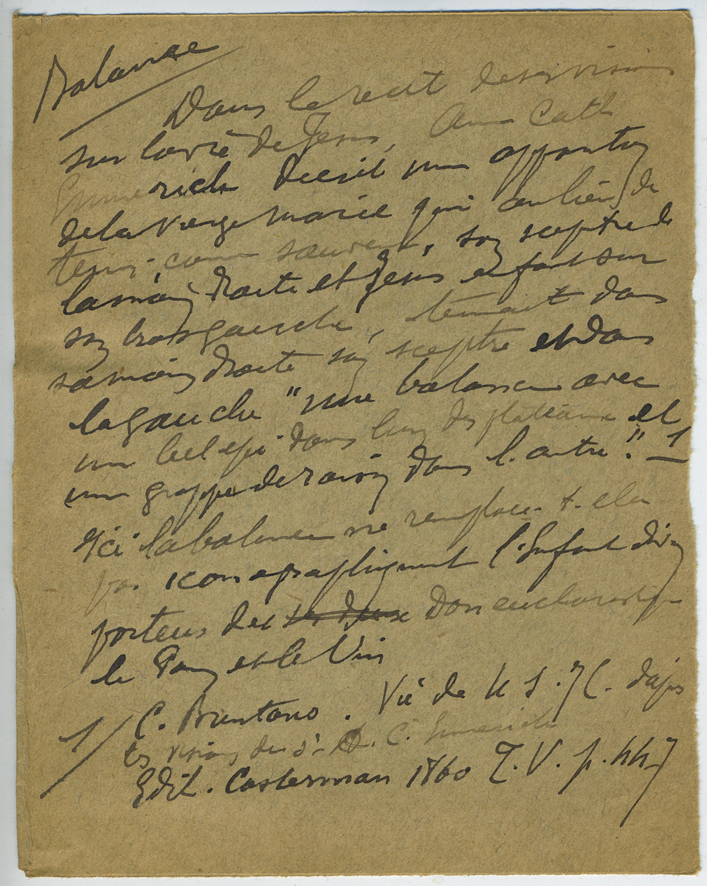 Balance
Dans le récit de ses visions
sur la vie de Jésus, Anne Cath
Emmerich décrit une apparition
de la Vierge Marie qui au lieu de
tenir, comme souvent, son sceptre de
la main droite et Jésus enfant sur
son bras gauche, tenait dans
sa main droite son sceptre et dans
la gauche "une balance avec
un bel épi dans l'un des plateaux et
une grappe de raisin dans l'autre." 1
Ici la balance ne remplace-t-elle
pas iconographiquement l'Enfant divin
porteur des ses deux Dons eucharistiques
le Pain et le Vin
1/ C. Brentano. Vie de N. S. J. C. d'après
les visions de A. C. Emmerich
Edit. Casterman 1860 T. V. p. 447